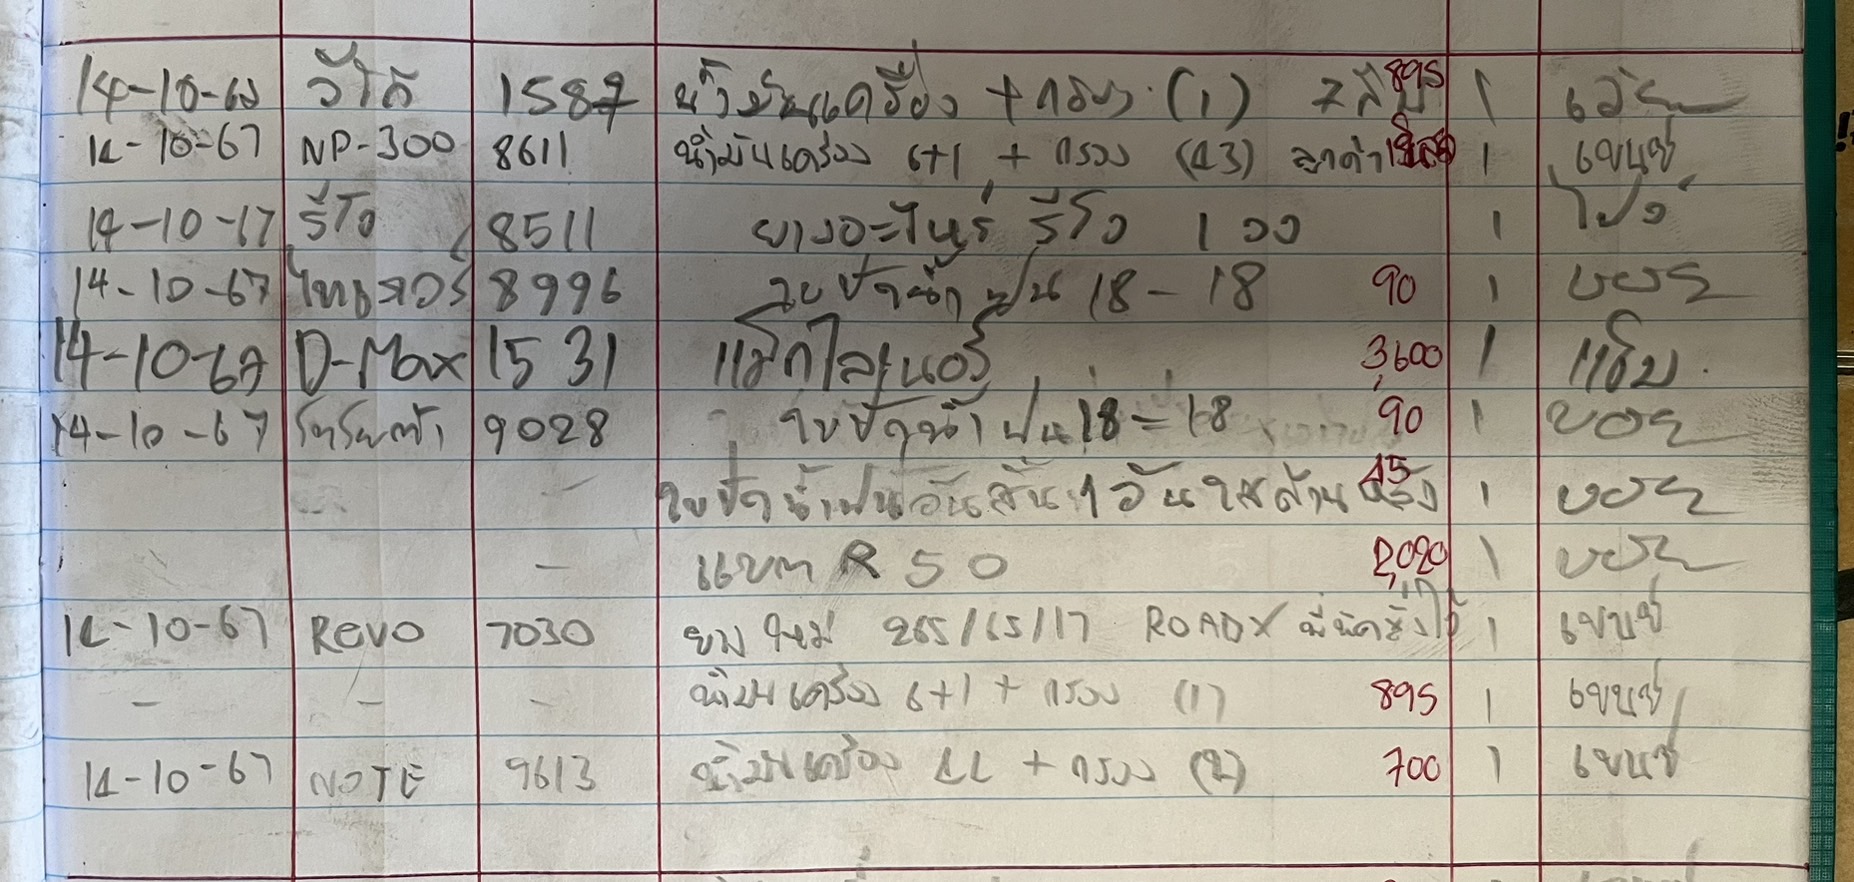 14-10-67 วีโก้ 1587 น้ำมันเครื่อง + กรอง (1) 7ลิตร 895 1
14-10-67 NP-300 8611 น้ำมันเครื่อง 6+1 + กรอง (43) ลูกค้า 1
14-10-17 รีโว 8511 ยางอะไหร่ รีโว 1 วง 1 โป้ง
14-10-67 ไทเกอร์ 8996 ใบปัดน้ำฝน 18-18 90 1 บอย
14-10-67 D-Max 1531 แม็กไลเนอร์ 3,600 1
14-10-67 โตโยต้า 9028 ใบปัดน้ำฝน 18-18 90 1 บอย
- ใบปัดน้ำฝนอันสั้น 1 อันใส่ด้านหลัง 45 1 บอย
- แบต R 50 2,020 1 บอย
14-10-67 REVO 7030 ยางใหม่ 265/65/17 ROADX 1
- - - น้ำมันเครื่อง 6+1 + กรอง (1) 895 1
14-10-67 NOTE 9613 น้ำมันเครื่อง 4L + กรอง (2) 700 1